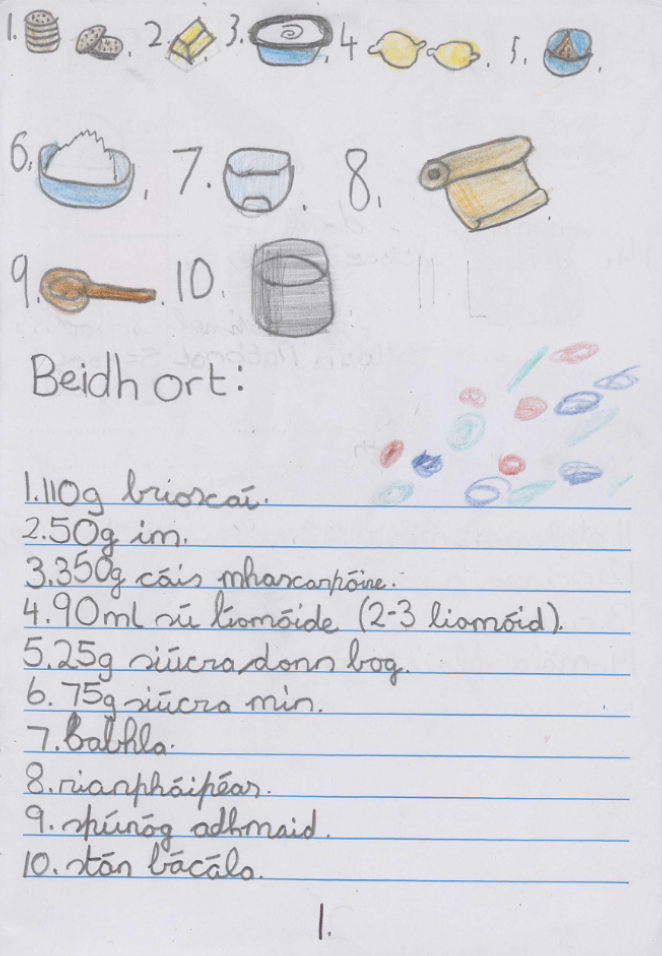 1. 2. 3. 4 5.
6. 7. 8.
9. 10.
Beidh ort:
1.110g brioscaí.
2.50g im.
3.350g cáis mhascarpóine.
4.90ml sú líomóide (2-3 liomóid).
5.25g siúcra donn bog.
6. 75g siúcra mín.
7. babhla.
8. rianpháipéar.
9. spúnóg adhmaid.
10. stán bácála.
1.